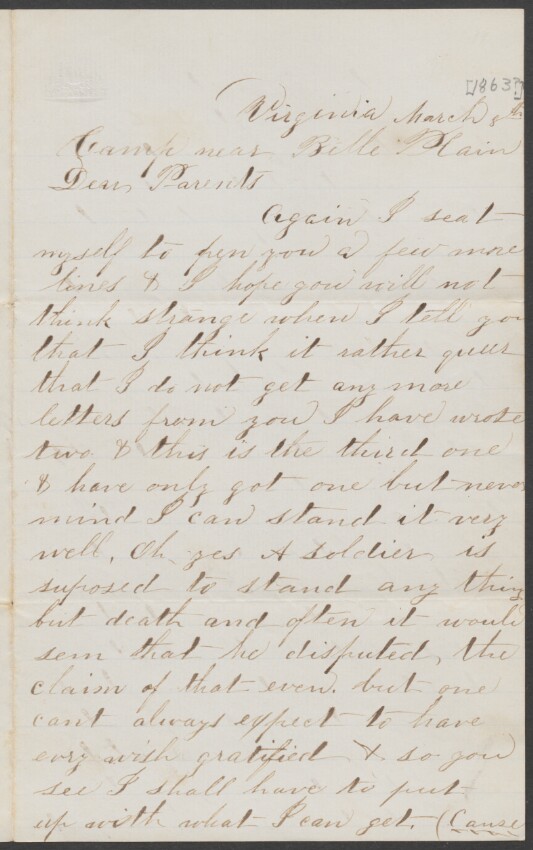 [1863?]
Virginia March 8th
Camp near Belle Plain
Dear Parents
Again I seat
myself to pen you a few more
lines & I hope you will not
think strange when I tell you
that I think it rather queer
that I do not get any more
letters from you I have wrote
two & this is the third one
& have only got one but never
mind I can stand it very
well. Oh yes A soldier is
suposed to stand any thing
but death and often it would
sem that he disputed, the
claim of that even. but one
cant always expect to have
evry wish gratified & so you
see I shall have to put
up with what I can get. (Cause